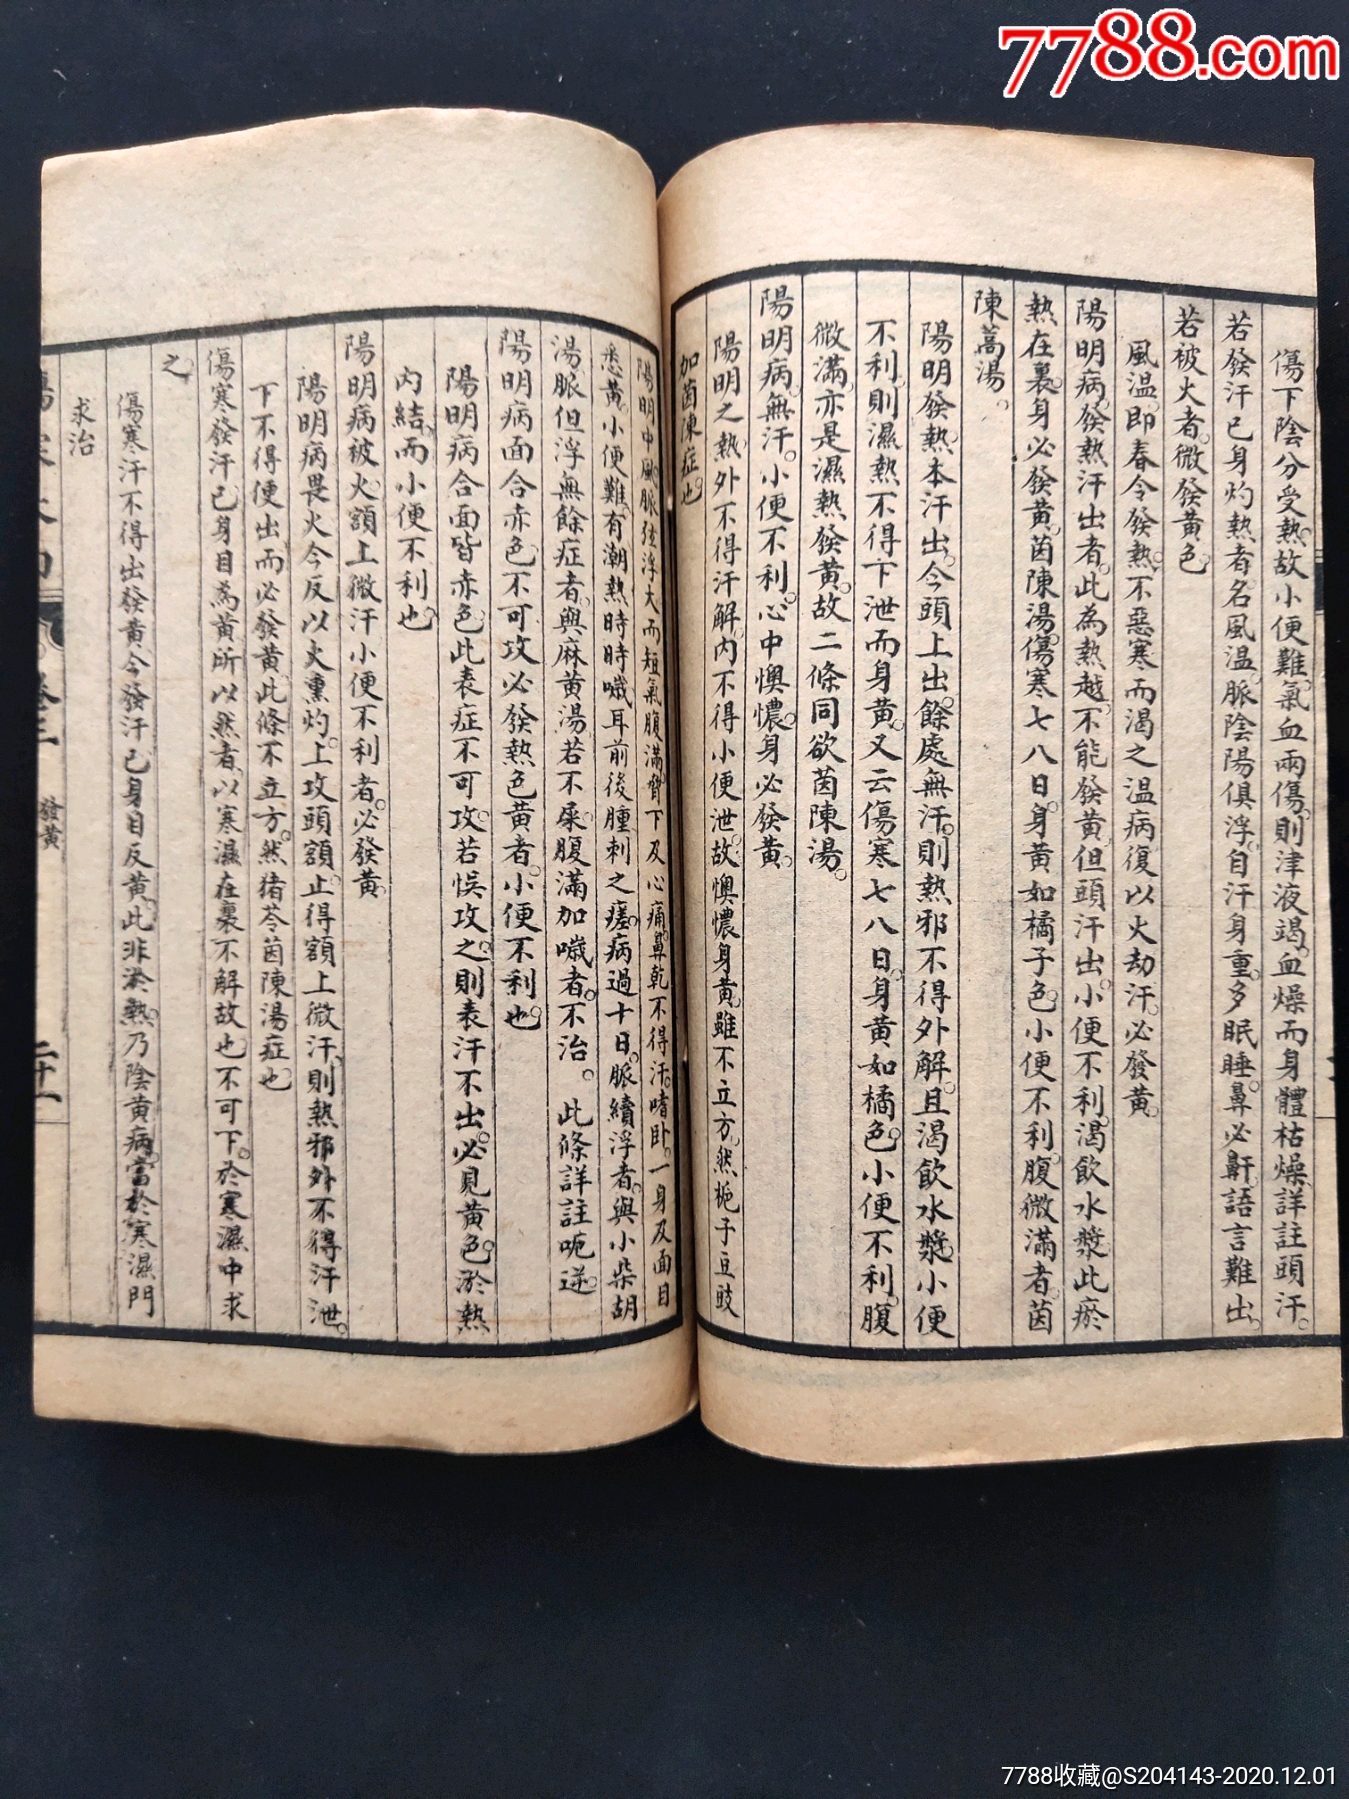 7788.com
傷下陰分受熱。故小便難。氣血兩傷。則津液竭。血燥而身體枯燥。詳註頭汗。
若發汗已身灼熱者。名風溫。脈陰陽俱浮。自汗身重。多眠睡。鼻必鼾。語言難出。
若被火者。微發黃色。
風溫。即春令發熱。不惡寒而渴之溫病。復以火劫汗。必發黃。
陽明病。發熱汗出者。此為熱越。不能發黃。但頭汗出。小便不利。渴飲水漿。此瘀
熱在裏。身必發黃。茵陳湯。傷寒七八日。身黃如橘子色。小便不利。腹微滿者。茵
陳蒿湯。
陽明發熱。本汗出。今頭上出。餘處無汗。則熱邪不得外解。且渴飲水漿。小便
不利。則濕熱不得下泄而身黃。又云傷寒七八日。身黃如橘色。小便不利。腹
微滿。亦是濕熱發黃。故二條同欲茵陳湯。
陽明病。無汗。小便不利。心中懊憹。身必發黃。
陽明之熱。外不得汗解。內不得小便泄。故懊憹身黃。雖不立方。然梔子豆豉
加茵陳症也。
陽明中風。脈弦浮大而短氣。腹滿。脅下及心痛。鼻乾不得汗。嗜卧。一身及面目
悉黃。小便難。有潮熱。時時噦。耳前後腫。刺之瘥。病過十日。脈續浮者。與小柴胡
湯。脈但浮無餘症者。與麻黃湯。若不屎。腹滿加噦者。不治。 此條詳註呃逆。
陽明病。面合赤色。不可攻。必發熱色黃者。小便不利也。
陽明病合面皆赤色。此表症不可攻。若悞攻之。則表汗不出。必見黃色。淤熱
內結。而小便不利也。
陽明病被火。額上微汗。小便不利者。必發黃。
陽明病畏火。今反以火熏灼。上攻頭額。止得額上微汗。則熱邪外不得汗泄。
下不得便出。而必發黃。此條不立方。然猪苓茵陳湯症也
傷寒發汗已。身目為黃。所以然者。以寒濕在裏不解故也。不可下。於寒濕中求
之。
傷寒汗不得出發黃。今發汗已身目反黃。此非淤熱。乃陰黃病。當於寒濕門
求治
卷三 發黃 二十一
7788收藏@S204143-2020.12.01